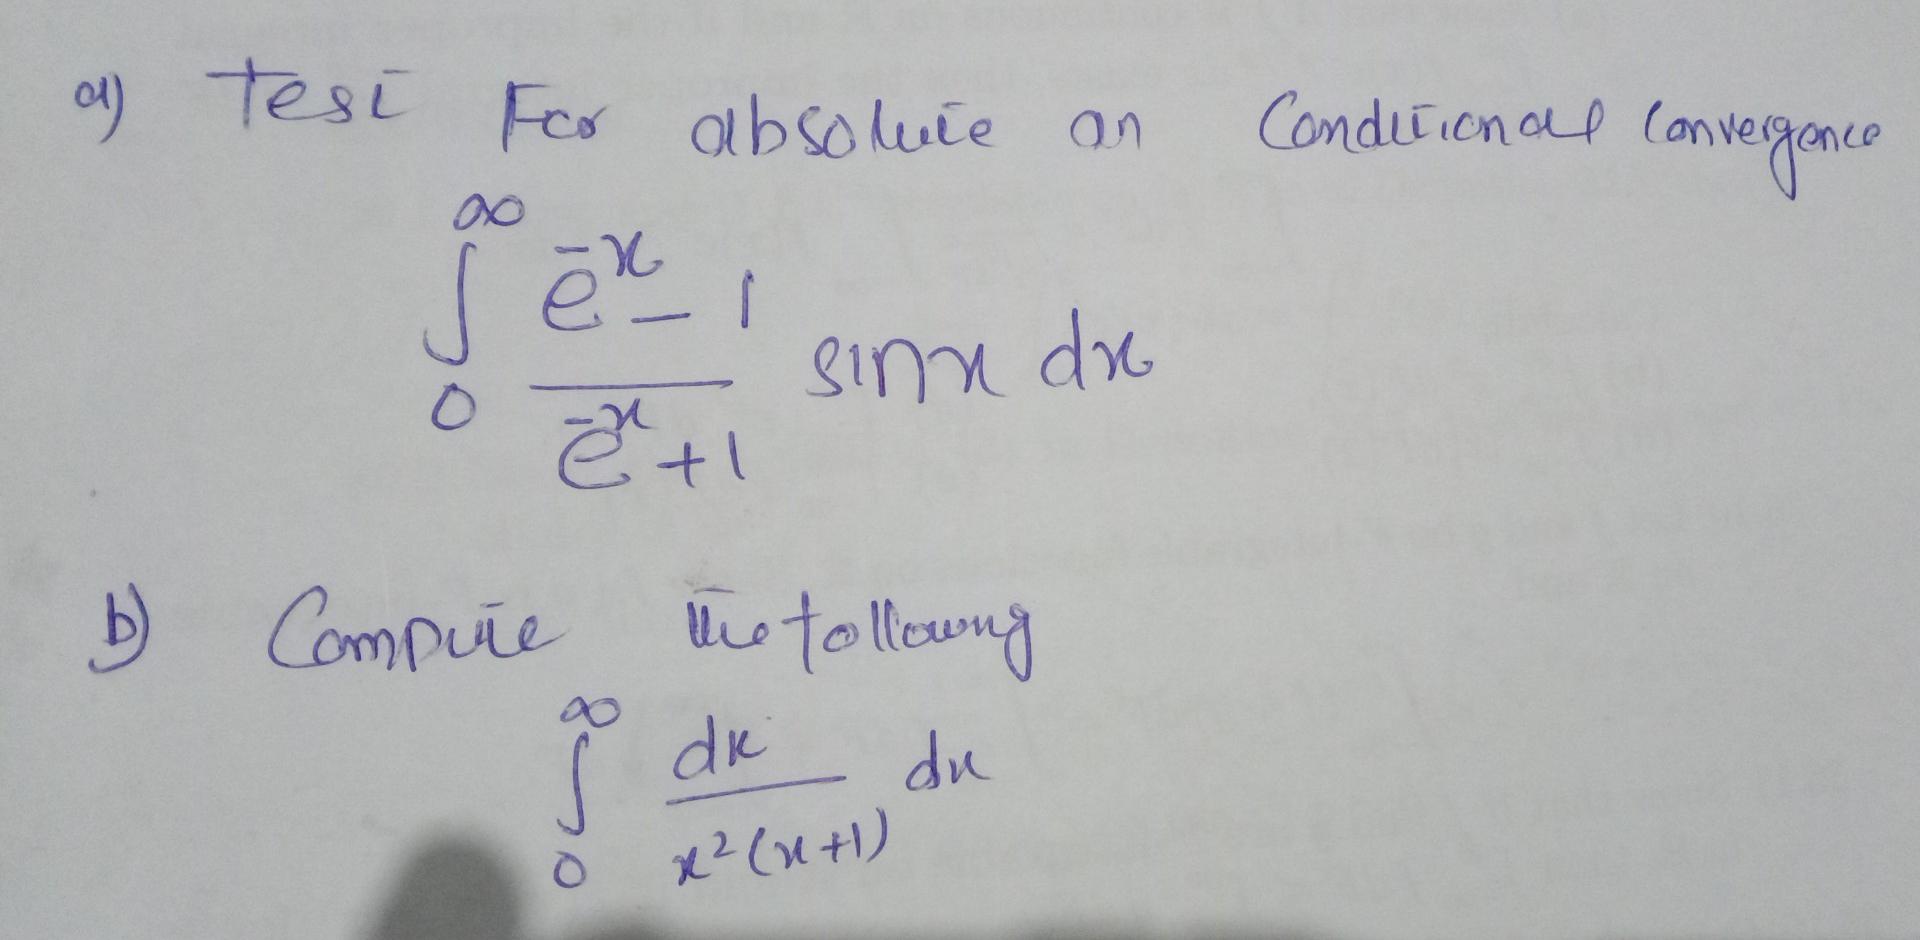 a) Test For absolute an Conditional Convergence
∞
∫ e^-x - 1
0 e^-x + 1 sinx dx
b) Compute the following
∞
∫ dx dx
0 x²(x+1)